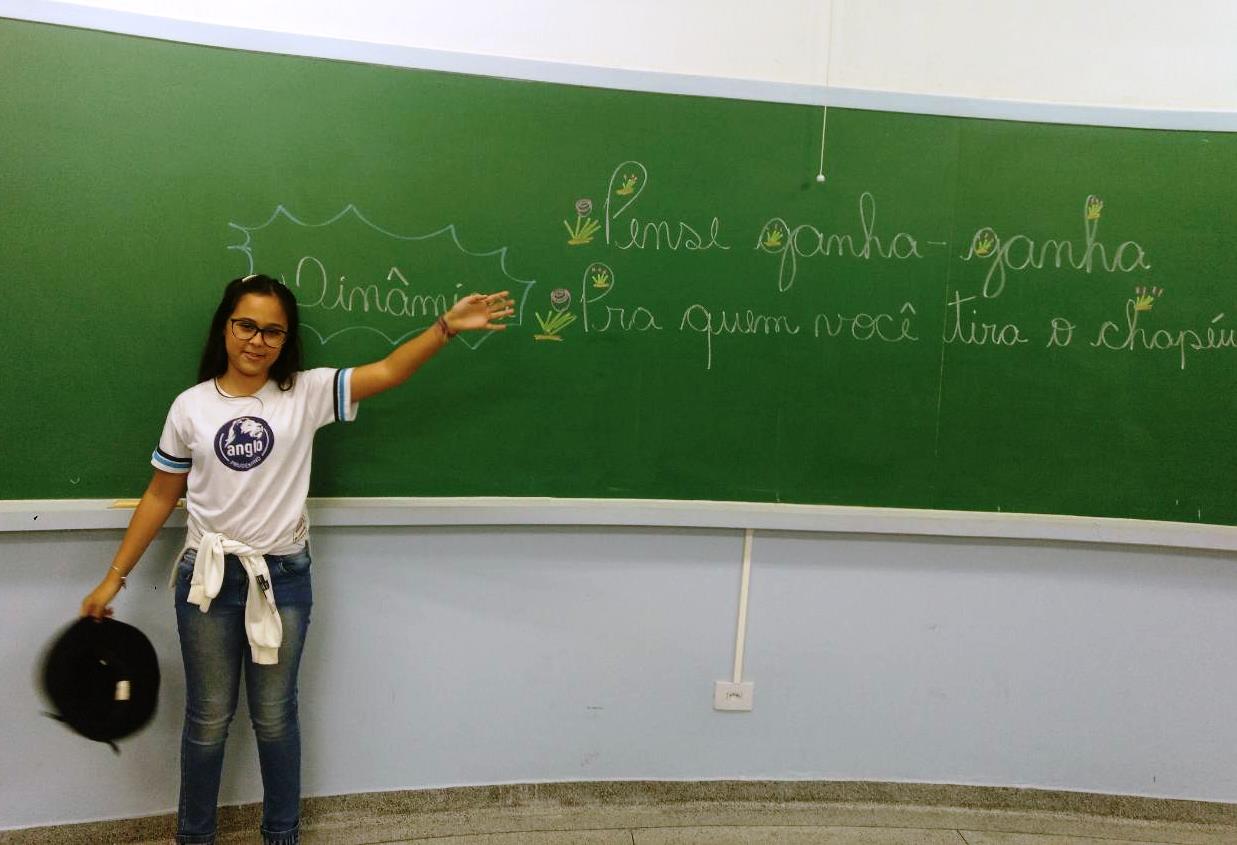 Pense ganha-ganha
Dinâmi
Pra quem você tira o chapéu
anglo
PRUDENTINO